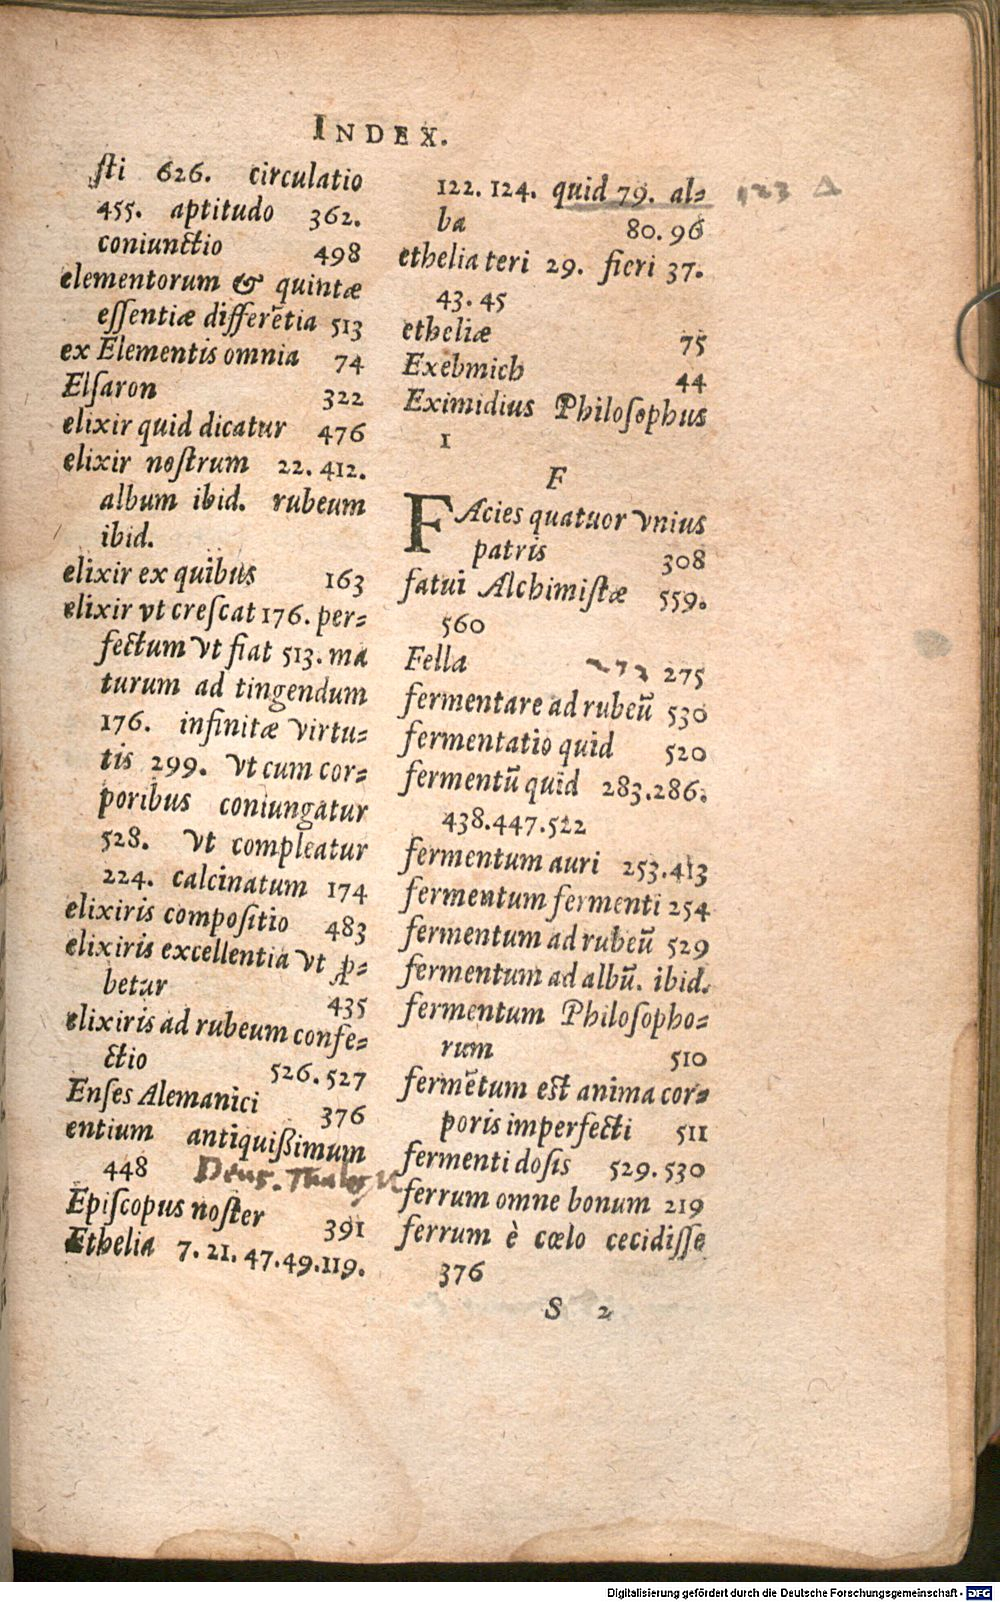 INDEX.
ſti 626. circulatio
455. aptitudo 362.
coniunctio 498
elementorum & quintæ
eſſentiæ differētia 513
ex Elementis omnia 74
Elſaron 322
elixir quid dicatur 476
elixir noſtrum 22. 412.
album ibid. rubeum
ibid.
elixir ex quibus 163
elixir vt creſcat 176. per=
fectum vt fiat 513. ma
turum ad tingendum
176. infinitæ virtu=
tis 299. vt cum cor=
poribus coniungatur
528. vt compleatur
224. calcinatum 174
elixiris compoſitio 483
elixiris excellentia vt ꝓ=
betur 435
elixiris ad rubeum confe=
ctio 526. 527
Enſes Alemanici 376
entium antiquißimum
448 Deus. Thales
Epiſcopus noſter 391
Ethelia 7. 21. 47. 49. 119.
122. 124. quid 79. al= 123 Δ
ba 80. 96
ethelia teri 29. fieri 37.
43. 45
etheliæ 75
Exebmich 44
Eximidius Philoſophus
1
F
FAcies quatuor vnius
patris 308
fatui Alchimiſtæ 559.
560
Fella 272 275
fermentare ad rubeū 530
fermentatio quid 520
fermentū quid 283. 286.
438. 447. 522
fermentum auri 253. 413
fermentum fermenti 254
fermentum ad rubeū 529
fermentum ad albū. ibid.
fermentum Philoſopho=
rum 510
fermētum eſt anima cor=
poris imperfecti 511
fermenti doſis 529. 530
ferrum omne bonum 219
ferrum è cœlo cecidiſſe
376
S 2
Digitalisierung gefördert durch die Deutsche Forschungsgemeinschaft - DFG